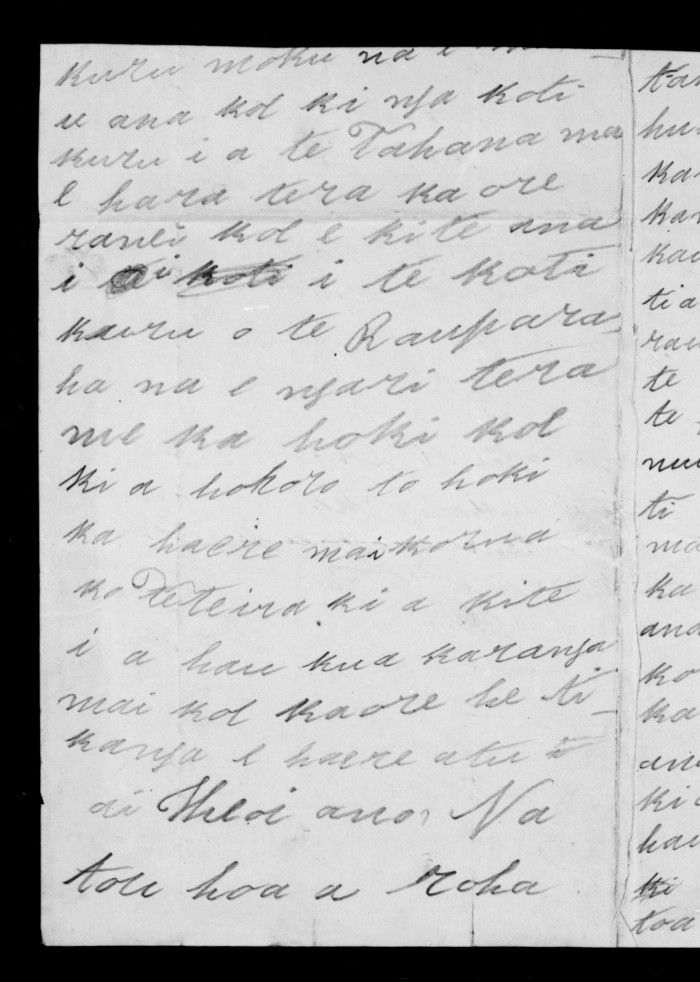 kuru moku na e
u ana koe ki nga koti
kuru i a te Tahana ma
e hara tera ka ore
ranei koe e kite ana
i i koti i te koti
kauru o te Raupara-
ha na e ngari tera
me ka hoki koe
ki a hohoro to hoki
ka haere mai korua
ko Te Teira ki a kite
i a hau kua karanga
mai koe kaore he ti-
kanga e haere atu
ai Heoi ano Na
tou hoa a roha
hu
ka
kar
kau
ti a
rau
te
te
ti
ma
ka
ana
ko
ka
ana
ki a
hau
ki
toa